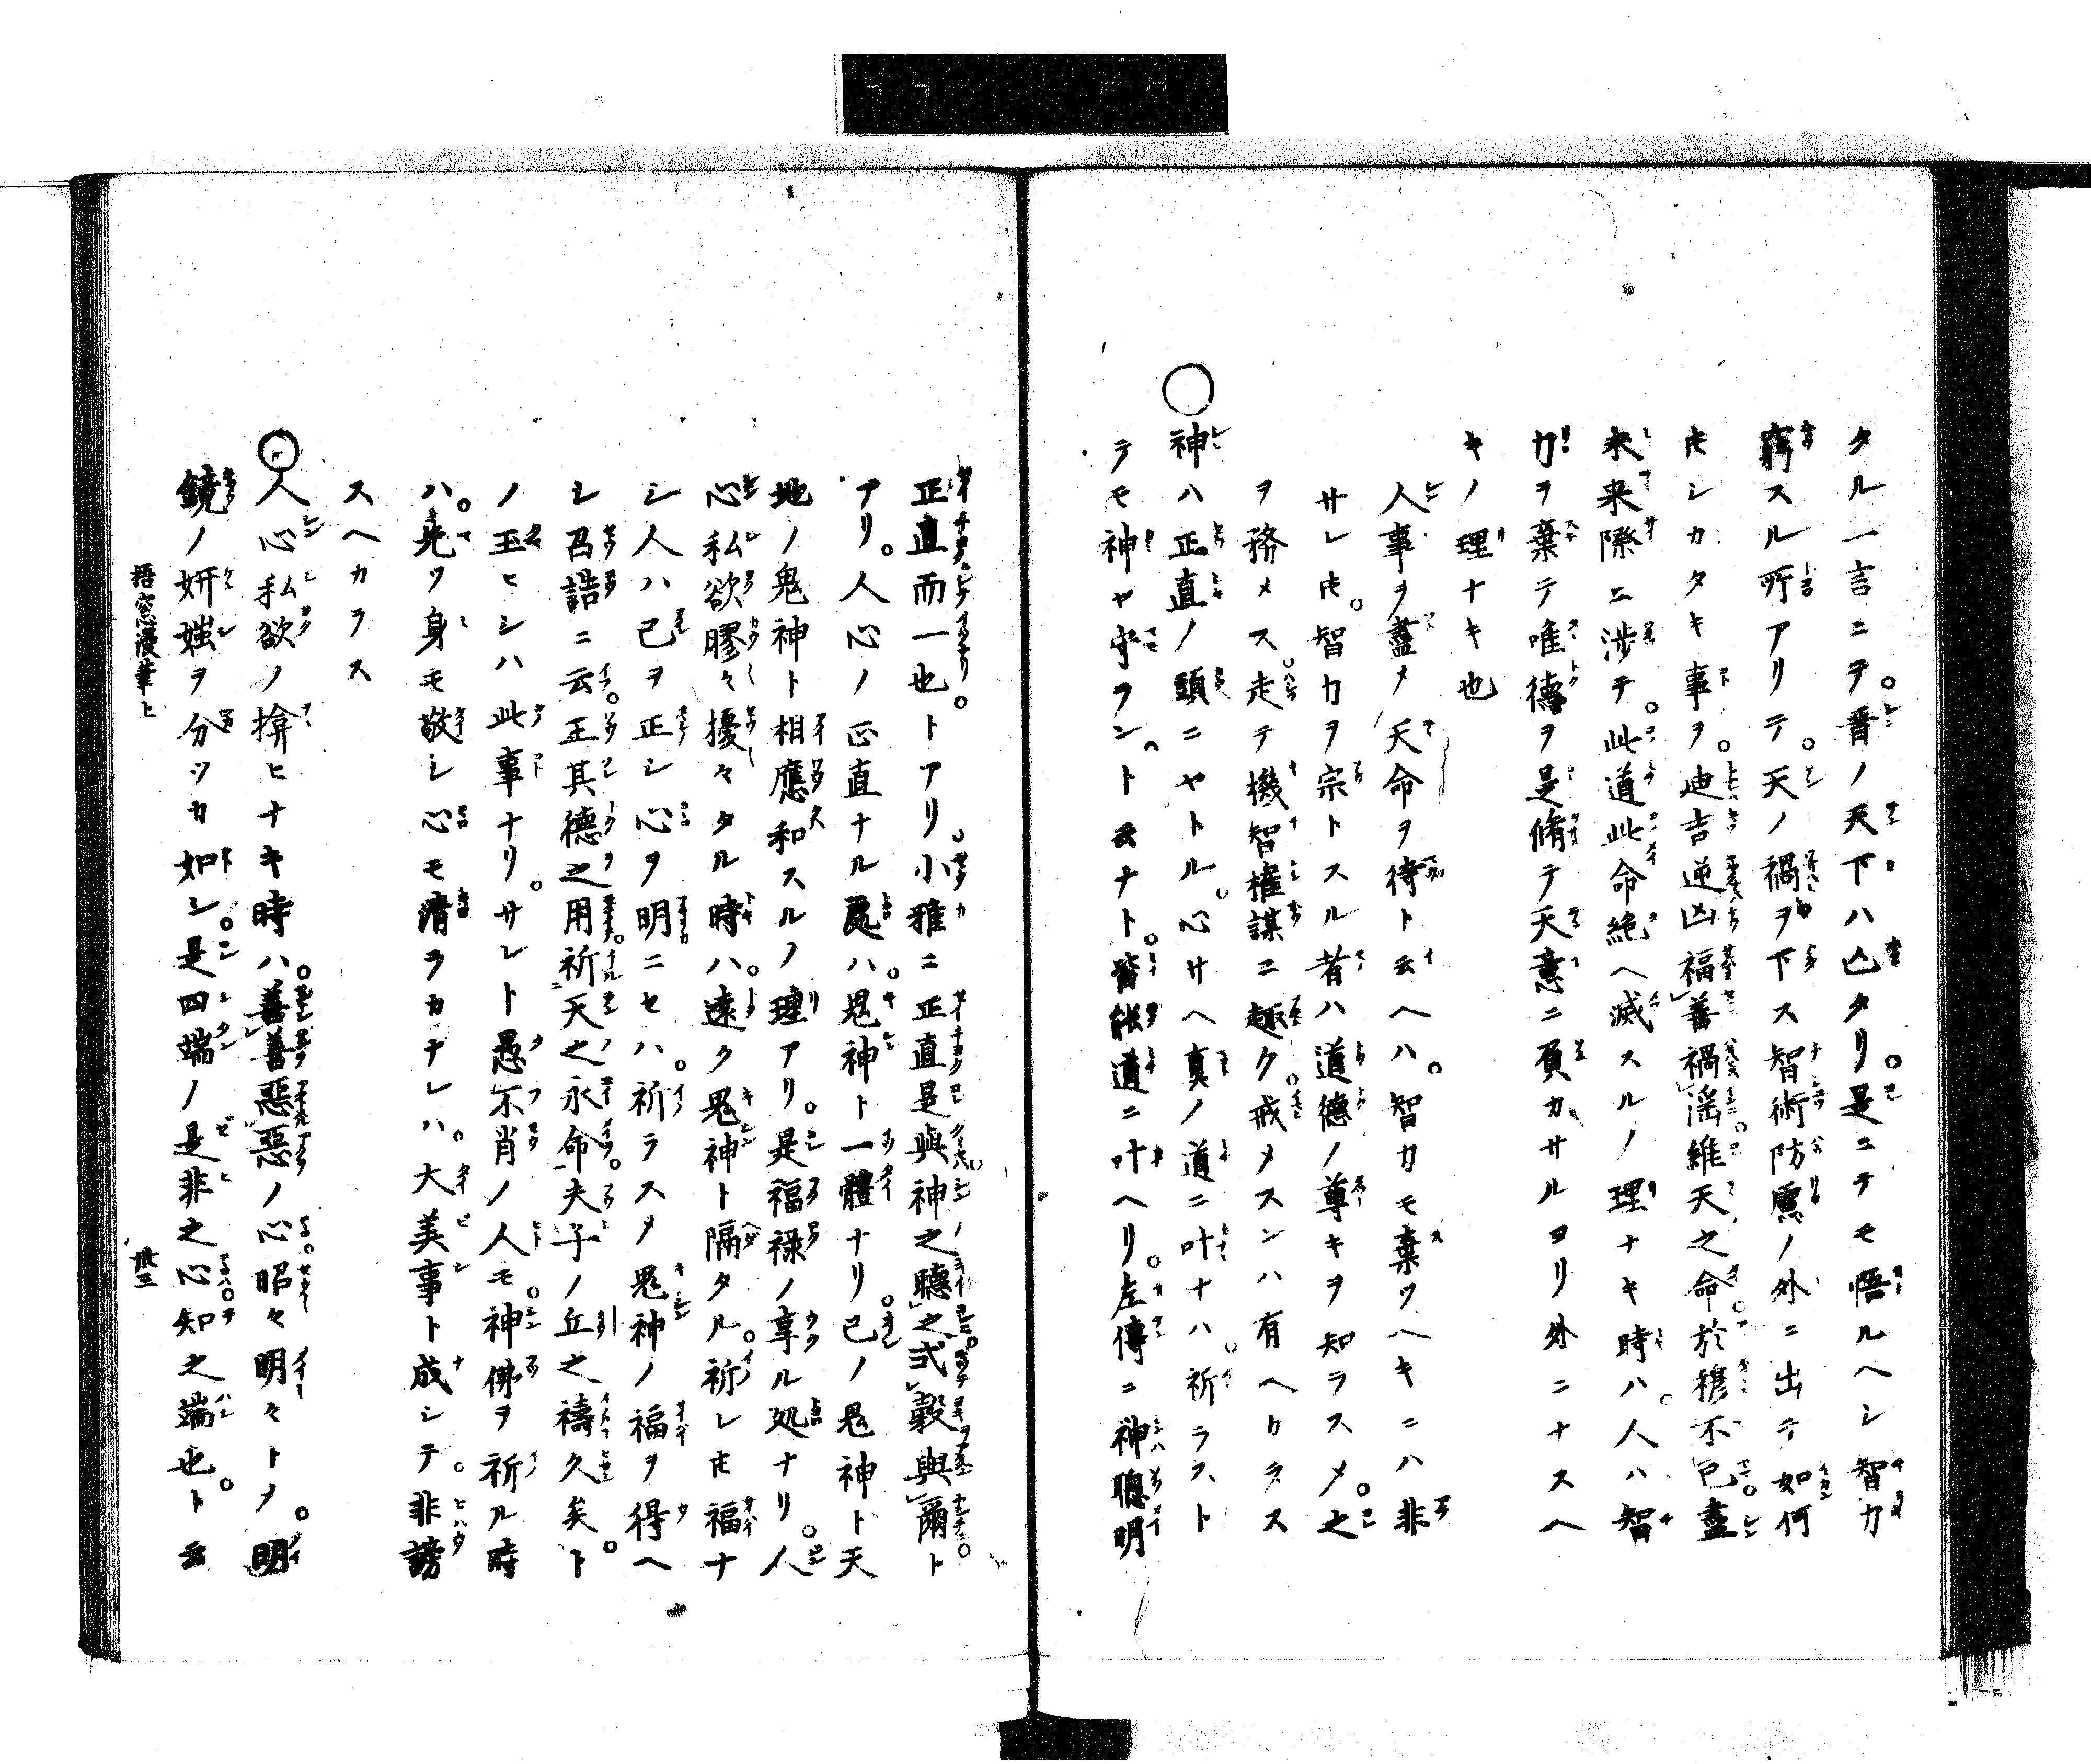 タル一言ニヲ。晋ノ天下ハ亡タリ。是ニテモ悟ルヘシ智力
窮スル所アリテ。天ノ禍ヲ下ス智術防慮ノ外ニ出テ如何
𪜈シカタキ事ヲ。迪吉逆凶福善禍淫維天之命於穆不已盡
未来際ニ渉テ。此道此命絶ヘ滅スルノ理ナキ時ハ。人ハ智
力ヲ棄テ唯徳ヲ是脩テ天意ニ負カサルヨリ外ニナスヘ
キノ理ナキ也
人事ヲ盡メ天命ヲ待ト云ヘハ。智力モ棄ツヘキニハ非
サレ𪜈。智力ヲ宗トスル者ハ道徳ノ尊キヲ知ラスメ。之
ヲ務メス走テ機智権謀ニ趣ク。戒メスンハ有ヘカラス
○神ハ正直ノ頭ニヤトル。心サヘ真ノ道ニ叶ナハ。祈ラストテモ
神ヤ守ラン。ト云ナト。皆能道ニ叶ヘリ。左傳ニ神聰明
正直而一也。トアリ。小雅ニ正直是與神之聴之式穀與爾ト
アリ。人心ノ正直ナル處ハ。鬼神ト一體ナリ。己ノ鬼神ト天
地ノ鬼神ト相應和スルノ理アリ。是福禄ノ享ル処ナリ。人
心私欲膠々擾々タル時ハ。遠ク鬼神ト隔タル。祈レ𪜈福ナ
シ人ハ己ヲ正シ心ヲ明ニセハ。祈ラスメ鬼神ノ福ヲ得ヘ
シ召誥ニ云。王其德之用祈天之永命夫子ノ丘之禱久矣。ト
ノ玉ヒシハ此事ナリ。サレト愚不肖ノ人モ。神佛ヲ祈ル時
ハ。先ツ身モ敬シ心モ清ヲカナレハ。大美事ト成シテ。非謗
スヘカラス
○人心私欲ノ揜ヒナキ時ハ。善善惡惡ノ心昭々明々トメ。明
鏡ノ妍媸ヲ分ツカ如シ。是四端ノ是非之心知之端也。ト云
梧窓漫筆上
卅三